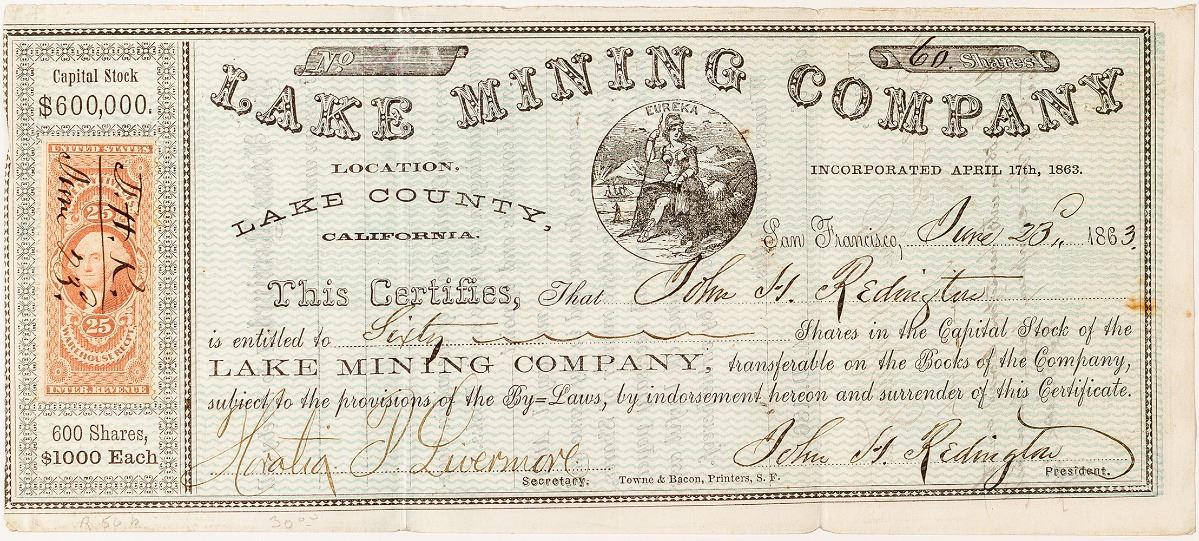 Capital Stock
$600,000.
UNITED STATES
25
25
WAREHOUSE REC'PT
INTER. REVENUE
J. H. R.
June 23.
600 Shares,
$1000 Each
No
60 Shares
LAKE MINING COMPANY
EUREKA
LOCATION.
LAKE COUNTY,
CALIFORNIA.
INCORPORATED APRIL 17th, 1863.
San Francisco, June 23d, 1863.
This Certifies, That John H. Redington
is entitled to Sixty Shares in the Capital Stock of the
LAKE MINING COMPANY, transferable on the Books of the Company,
subject to the provisions of the By=Laws, by indorsement hereon and surrender of this Certificate.
Horatio P. Livermore John H. Redington
Secretary. Towne & Bacon, Printers, S. F. President.